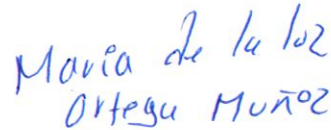 María de la luz
Ortega Muñoz